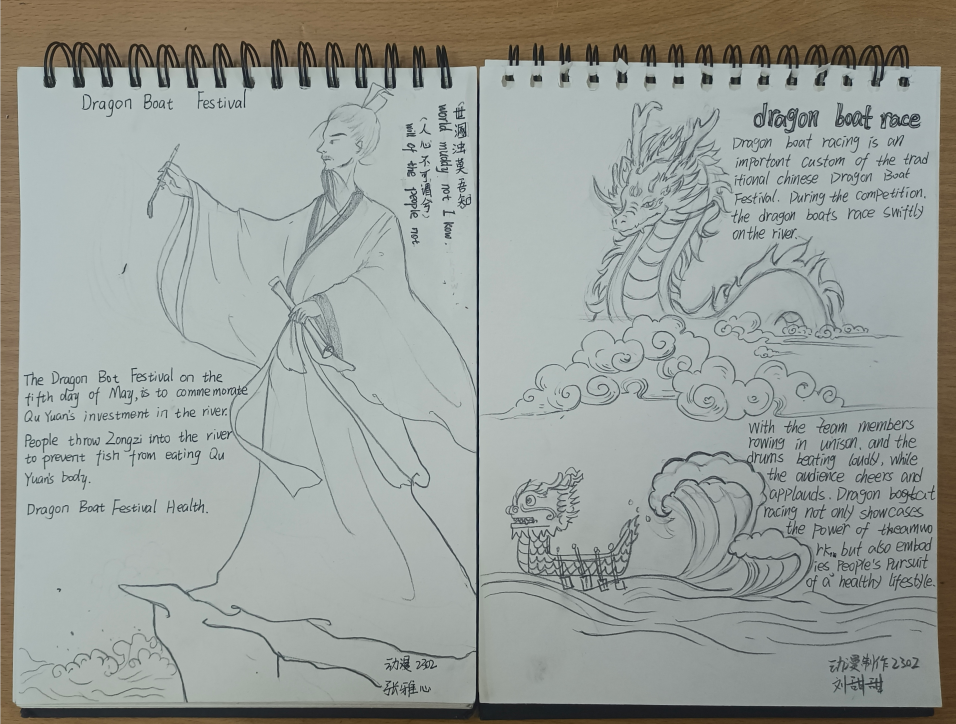 Dragon Boat Festival
世溷浊莫吾知
world muddy not I kow.
(人心不可谓兮)
will of the people not
The Dragon Bot Festival on the
fifth day of May, is to commemorate
Qu Yuan's investment in the river.
People throw Zongzi into the river
to prevent fish from eating Qu
Yuan's body.
Dragon Boat Festival Health.
动漫2302
张雅心
dragon boat race
Dragon boat racing is an
important custom of the trad
itional chinese Dragon Boat
Festival. During the competition.
the dragon boats race swiftly
on the river.
With the team members
rowing in unison, and the
drums beating loudly, while
the audience cheers and
applauds. Dragon
racing not only showcases
the Power of theamwo
rk, but also embod
ies People's Pursuit
of a healthy lifestyle.
动漫制作2302
刘甜甜